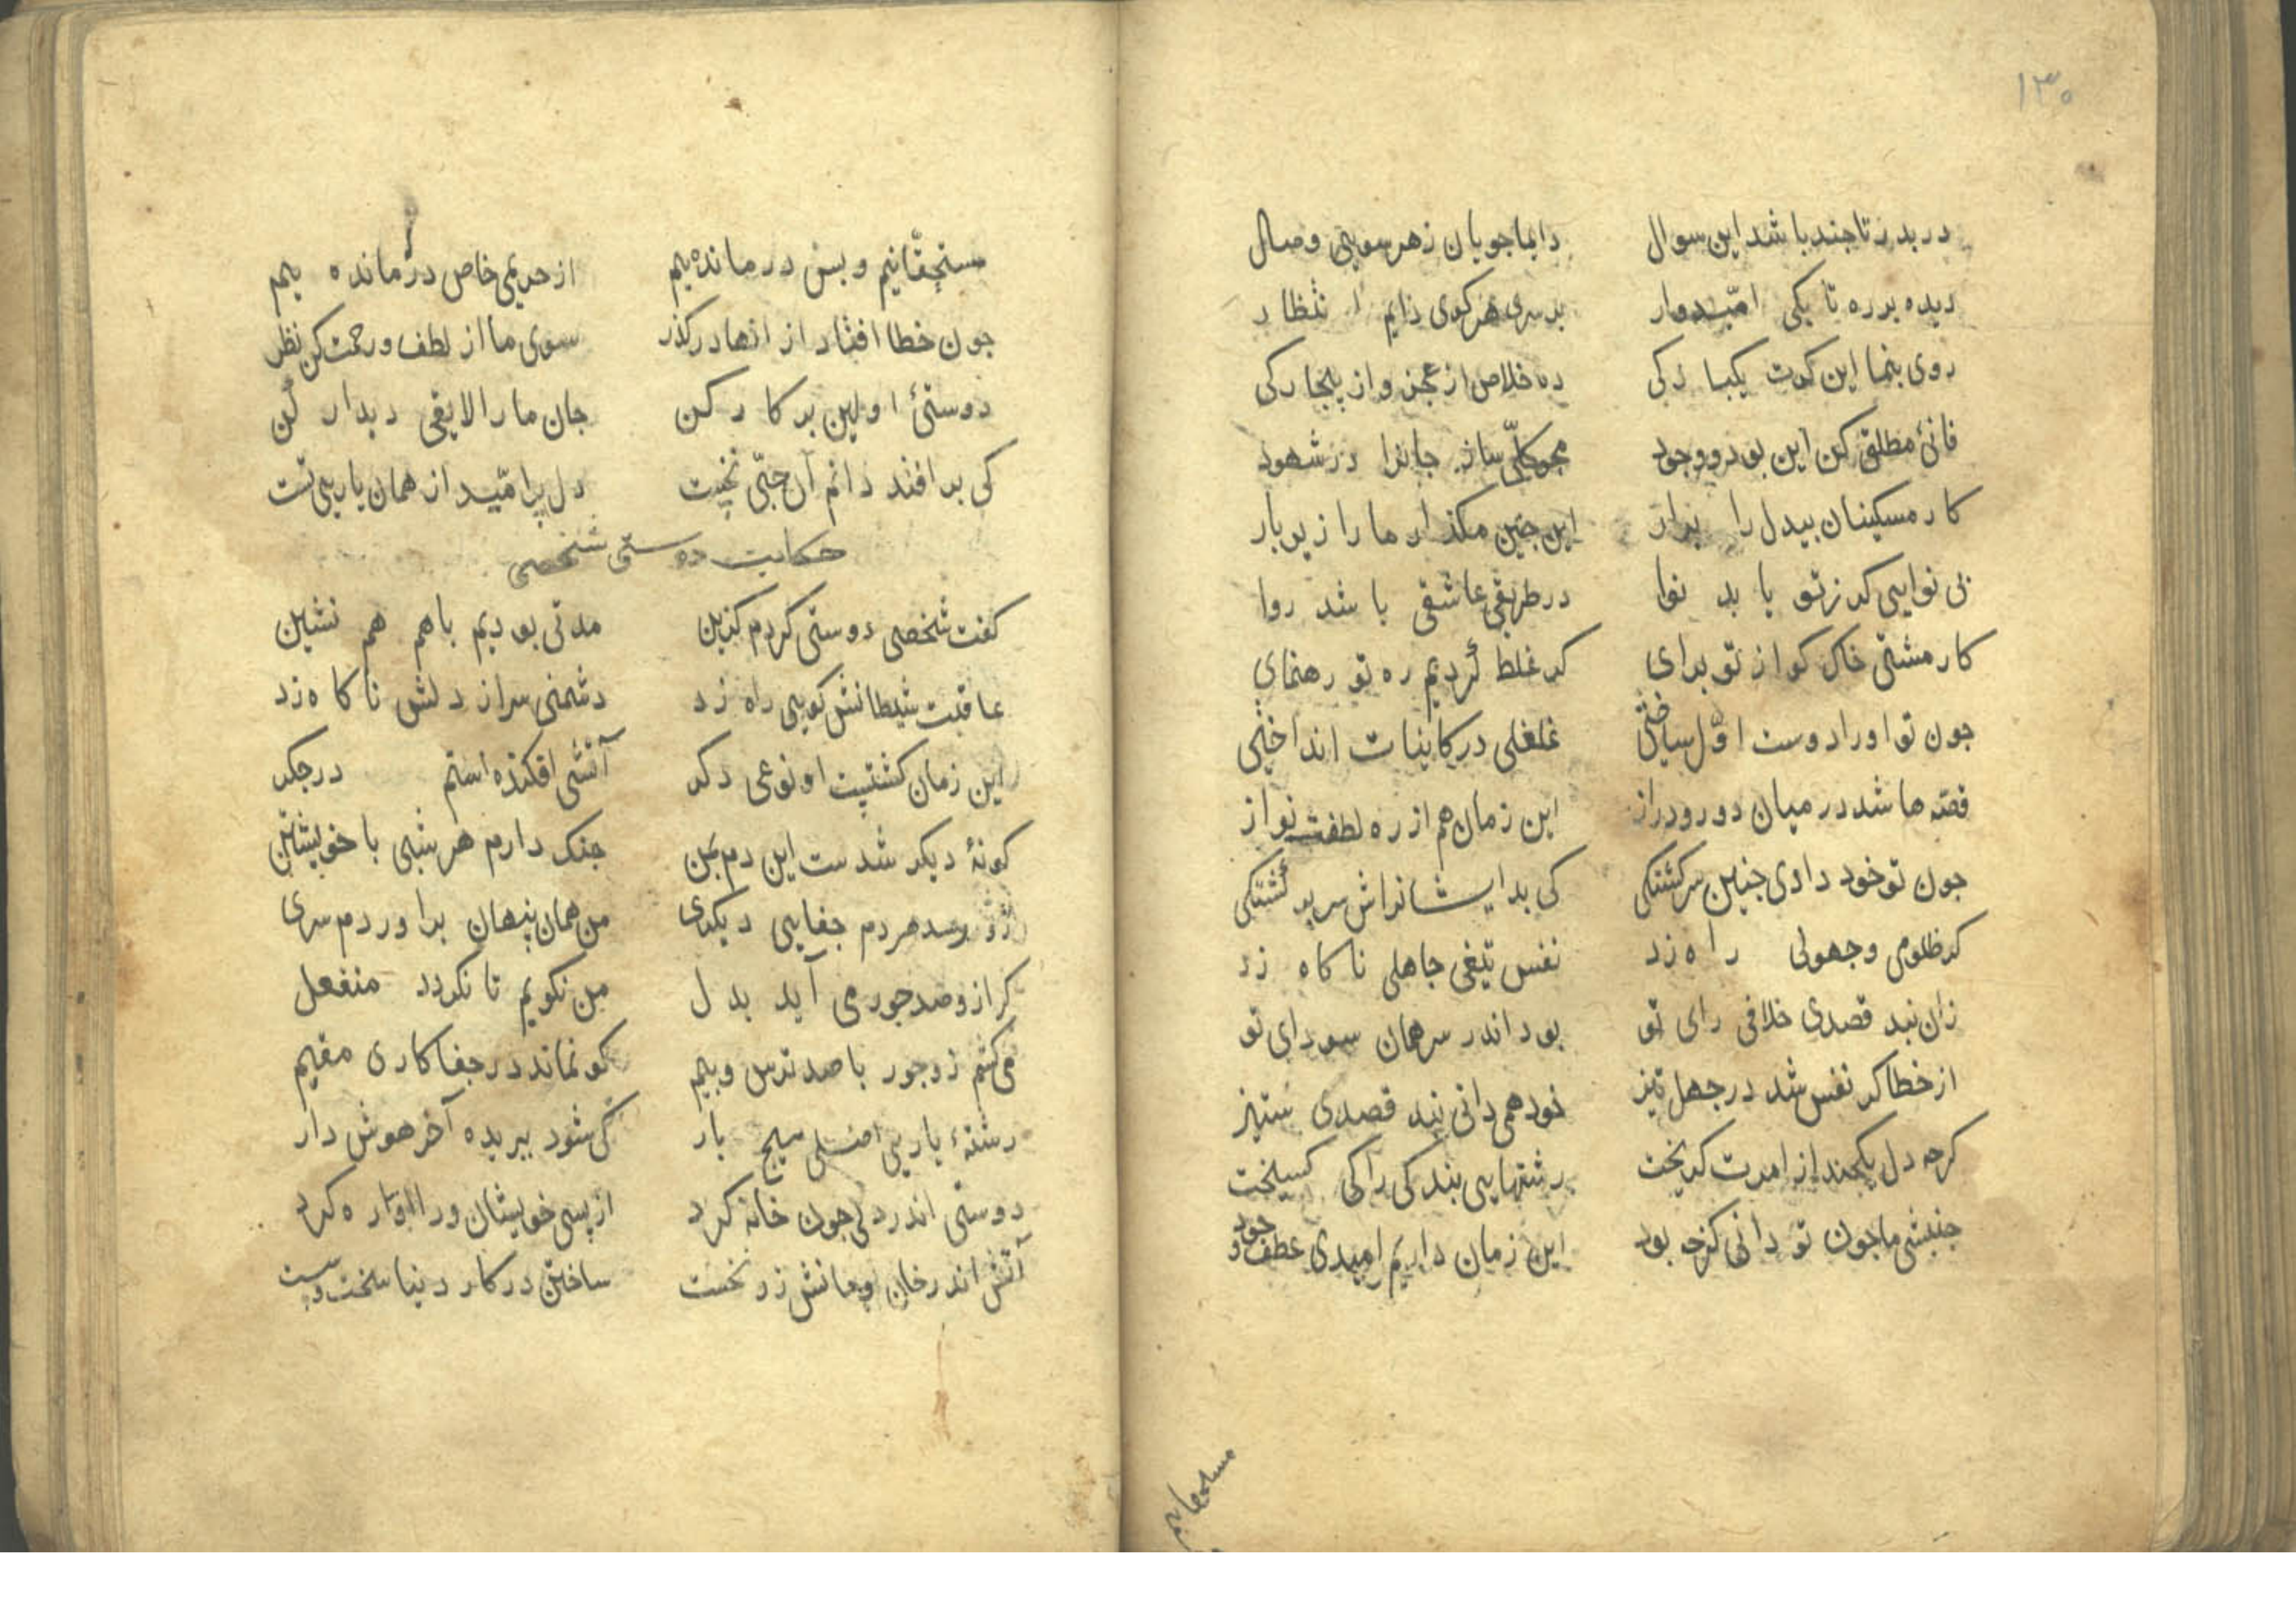 ۱۳۰
در بدر تا جند باشد این سوال دایما جویان زهر سویی وصال
دیده بر ره تا بکی امّیدوار بر سری هر کوی دایم انتظار
روی بنما این کرت یکبارکی ده خلاص از عجز و از بیجارکی
فانیٔ مطلق کن این بود و وجود محو کلّی ساز جانرا در شهود
کار مسکینان بیدل را برار این جنین مکذار ما را زیر بار
بی نوایی کر ز تو یابد نوا در طریقی عاشقی باشد روا
کار مشتی خاک کو از تو برای کر غلط کردیم ره تو رهنمای
جون تو اورا دوست اوّل ساختی غلغلی در کاینات انداختی
قصّه ها شد در میان دور و دراز این زمان هم از ره لطفش نواز
جون تو خود دادی جنین سرکشتکی کی بد ایشانراش سر بر کشتکی
کر ظلومی و جهولی راه زد نفس تیغی جاهلی ناکاه زد
زان نبد قصدی خلافی رای تو بود اندر سر همان سودای تو
از خطا کر نفس شد در جهل تیز خود همی دانی نبد قصدی ستیز
کرجه دل یکجند از امرت کریخت رشتهایی بندکی را کی کسیخت
جنبشی ما جون تو دانی کزجه بود این زمان داریم امیدی عطف و جود
مستحقّانیم و بس درمانده ییم از حریمی خاص در مانده ییم
جون خطا افتاد از انها درکذر سوی ما از لطف و رحمت کن نظر
دوستیٔ اولین بر کار کن جان ما را لایقی دیدار کن
کی بر افتد دانم آن حبّی نخست دل پر امّید از همان یاریی تست
حکایت دوستی شخصی
کفت شخصی دوستی کردم کزین مدتی بودیم باهم هم نشین
عاقبت شیطانش کویی راه زد دشمنی سر از دلش ناکاه زد
این زمان کشتیت او نوعی دکر آتشی افکنده استم در جکر
کونهٔ دیکر شدست این دم بمن جنک دارم هر شبی با خویشتن
زو رسد هر دم جفایی دیکری من همان پنهان براوردم سری
کر ازو صد جور می آید بدل من نکویم تا نکردد منفعل
می کشم زو جور با صد ترس و بیم کو نماند در جفا کاری مقیم
رشتهٔ یاریی سیج بار کی شود ببریده آخر هوش دار
دوستی اندر دلی جون خانه کرد از پسی خویشان ورا آواره کرد
آتش اندر خان و مانش زد نخست ساختن در کار دنیا سخت و سست